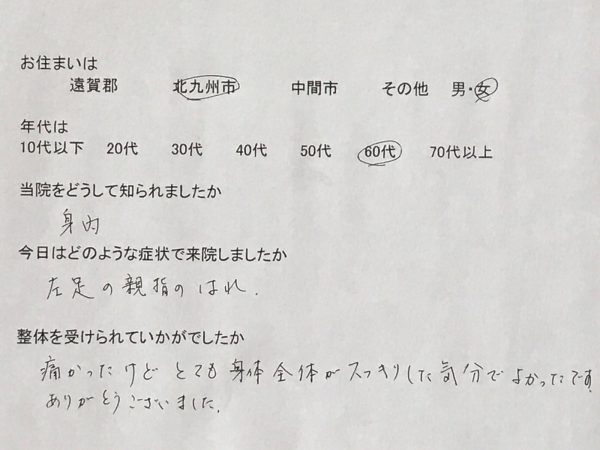 お住まいは
遠賀郡 北九州市 中間市 その他 男・女
年代は
10代以下 20代 30代 40代 50代 60代 70代以上
当院をどうして知られましたか
身内
今日はどのような症状で来院しましたか
左足の親指のはれ.
整体を受けられていかがでしたか
痛かったけど とても 身体全体がスッキリした気分でよかったです
ありがとうございました.